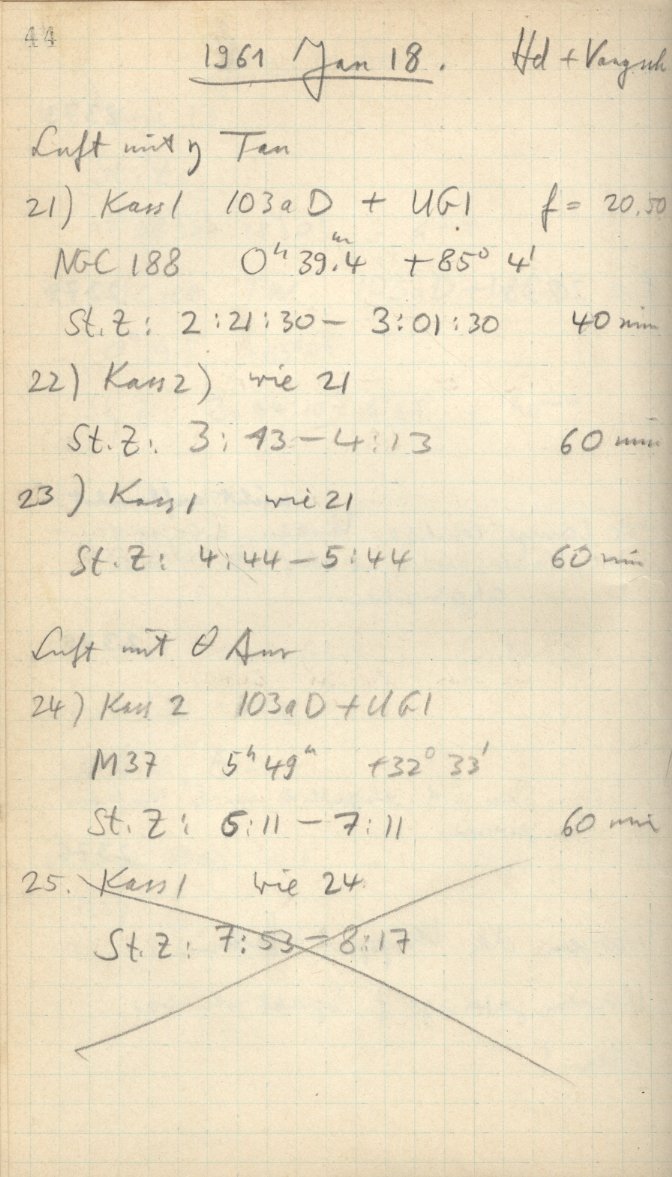 44
1961 Jan 18. Hd +
Luft mit η Tau
21) Kass1 103aD + UG1 f = 20.50
NGC 188 0ʰ 39ᵐ.4 +85° 4'
St.Z: 2:21:30 – 3:01:30 40 min
22) Kass2) wie 21
St.Z: 3:13 – 4:13 60 min
23) Kass1 wie 21
St.Z: 4:44 – 5:44 60 min
Luft mit θ Aur
24) Kass 2 103aD + UG1
M37 5ʰ 49ᵐ +32° 33'
St.Z: 6:11 – 7:11 60 min
25. Kass1 wie 24
St.Z: 7:53 – 8:17